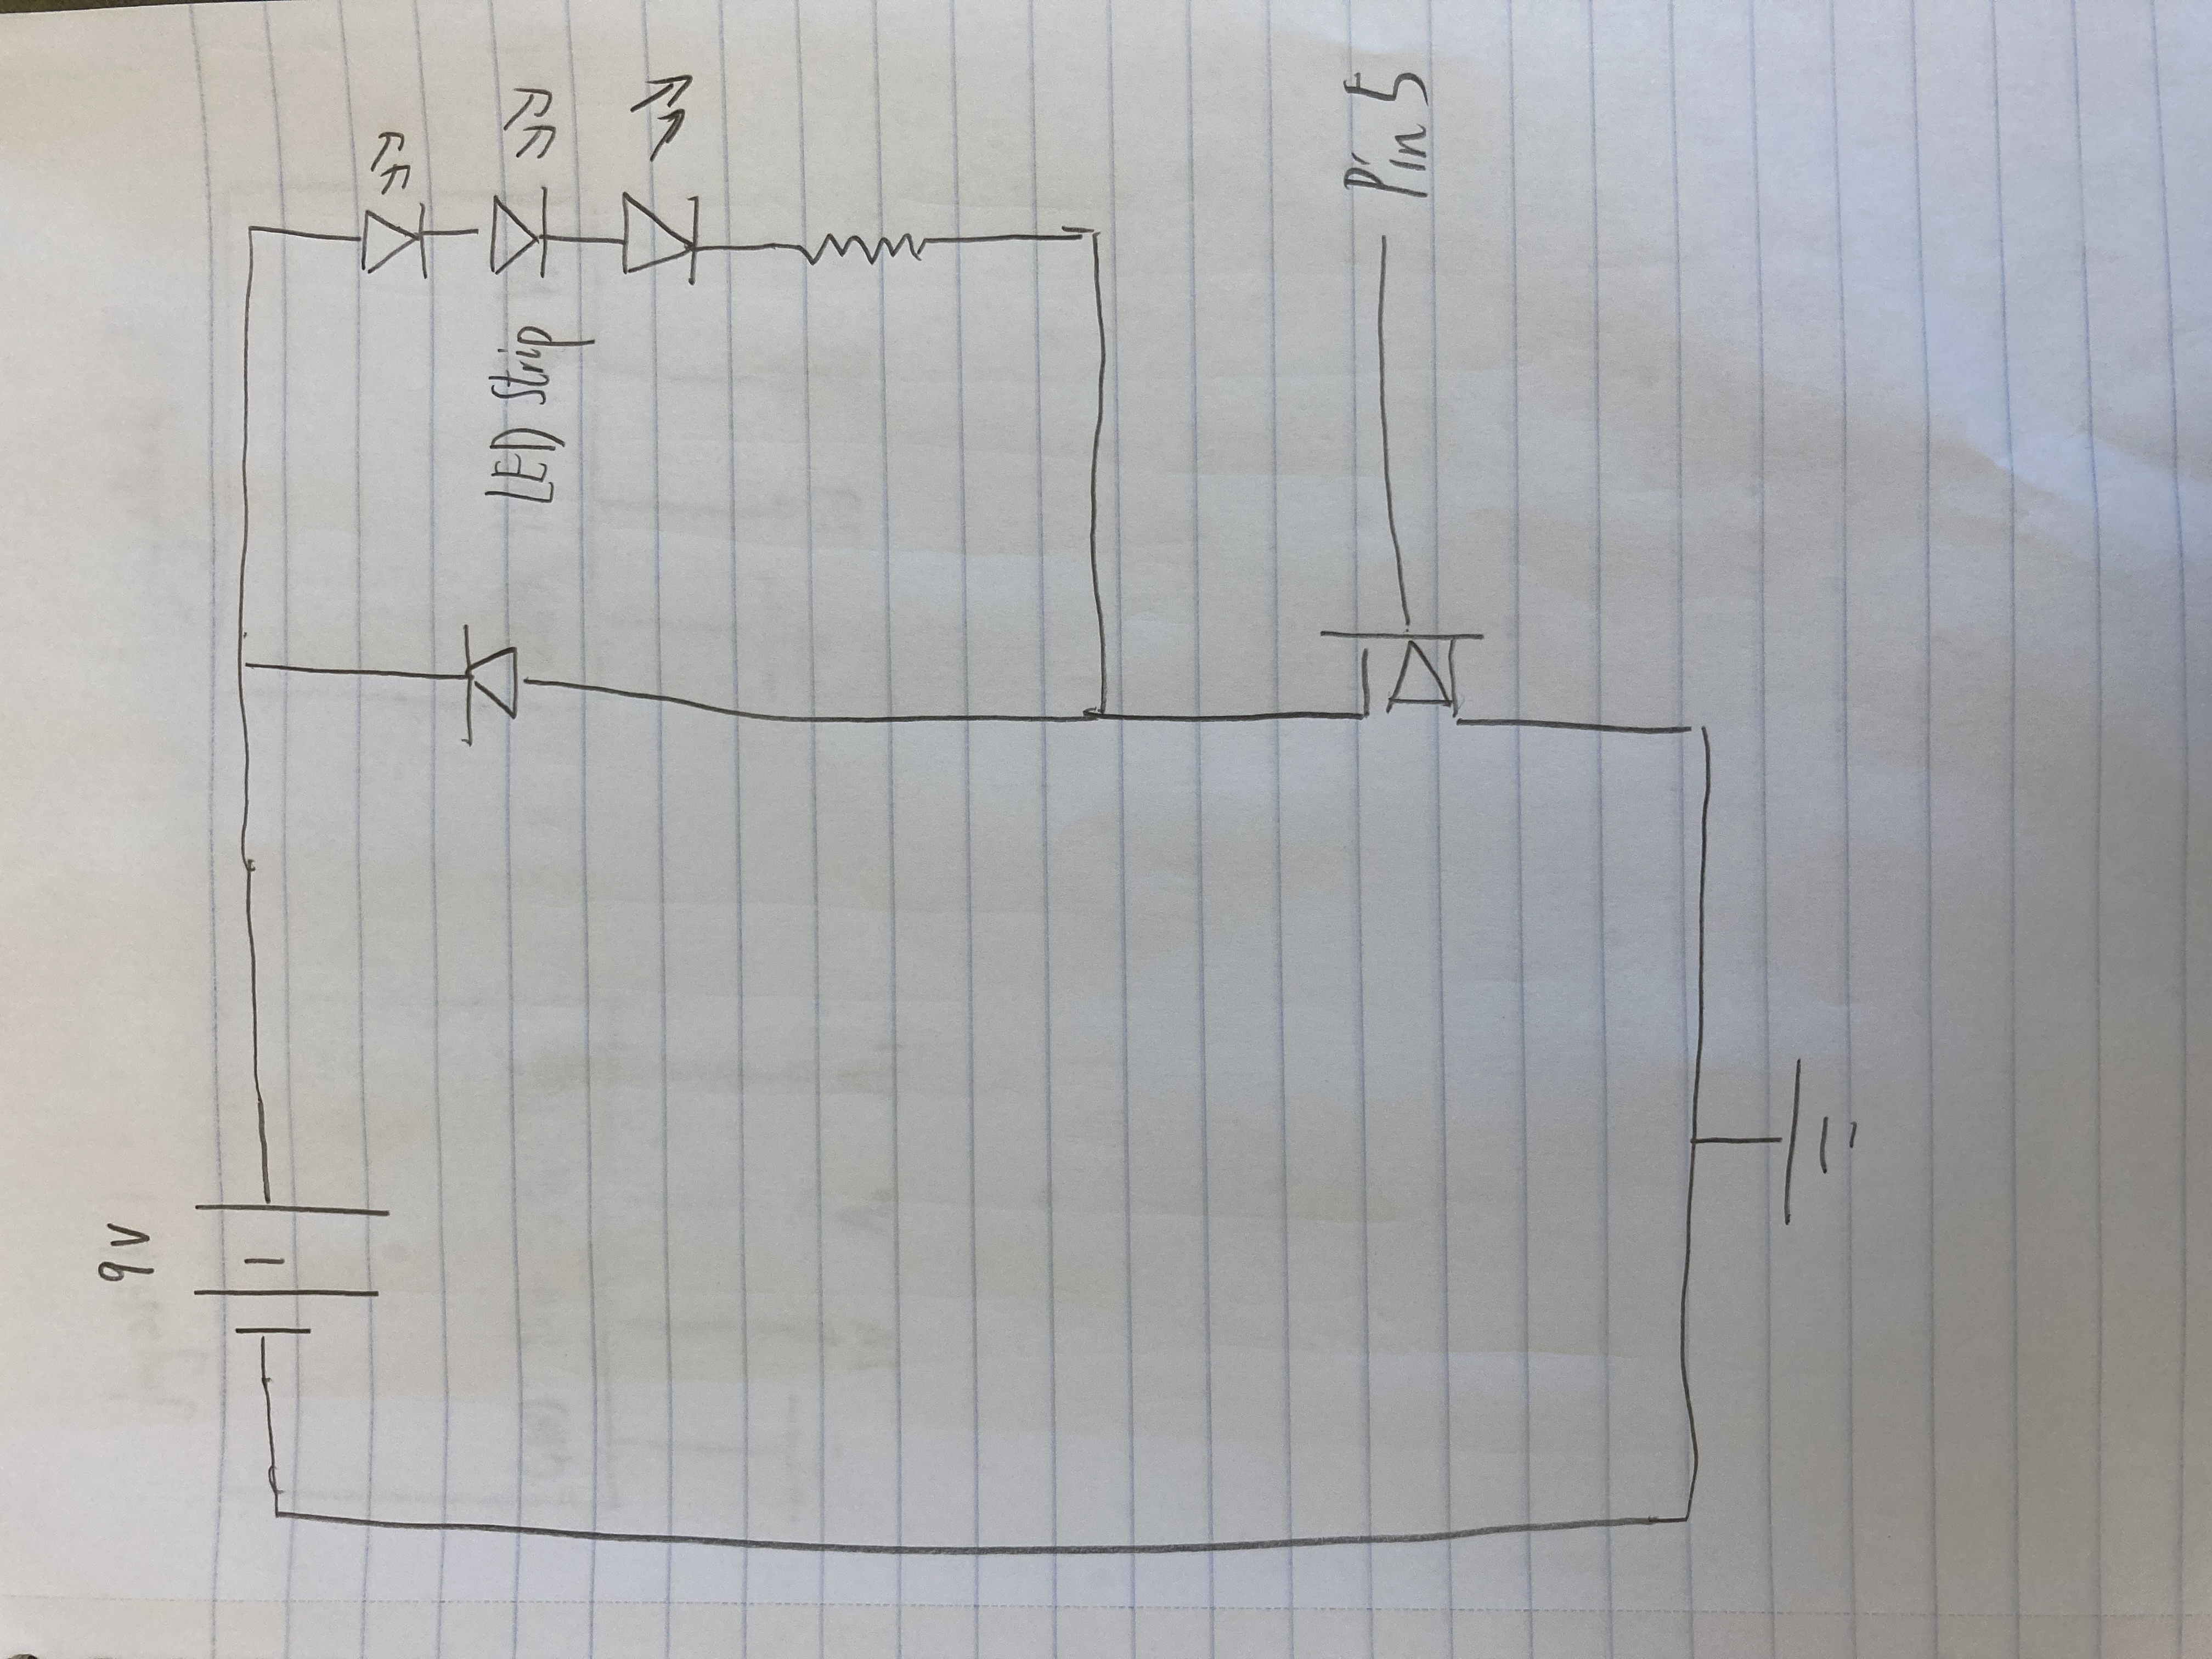 9V
LED Strip
Pin 5